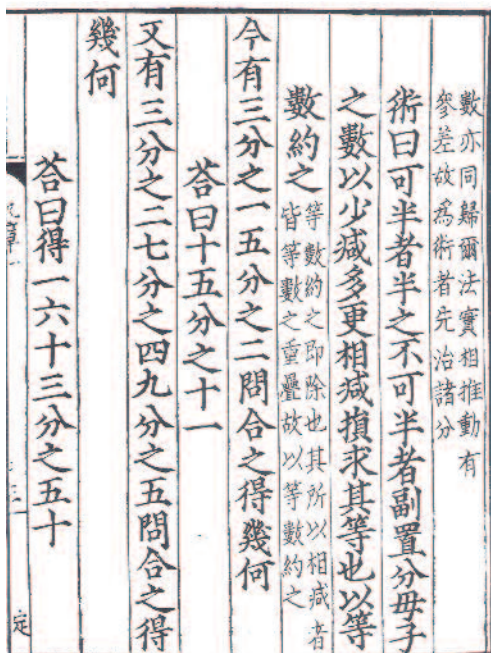 數亦同歸爾法實相推動有
參差故爲術者先治諸分
術曰可半者半之不可半者副置分母子
之數以少減多更相減損求其等也以等
數約之
等數約之即除也其所以相減者
皆等數之重疊故以等數約之
今有三分之一五分之二問合之得幾何
荅曰十五分之十一
又有三分之二七分之四九分之五問合之得
幾何
荅曰得一六十三分之五十
定